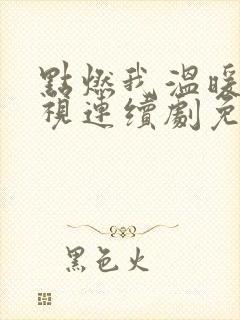 點燃我溫暖
視連續劇免
黑色火